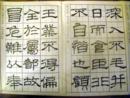 深入不毛并
日而食臣非
不自惜也顧
王業不得偏
全於蜀都故
冒危難以奉